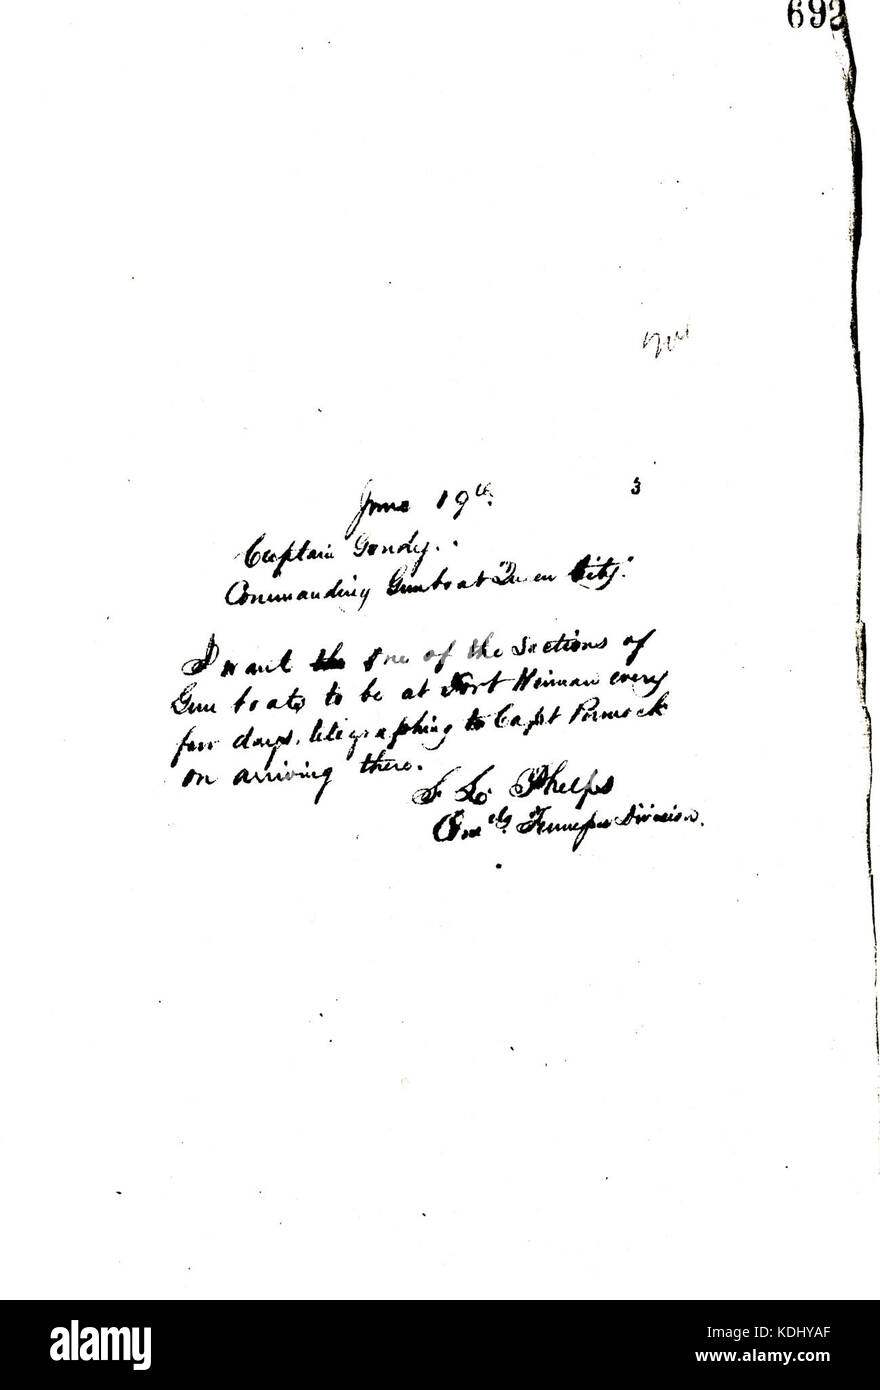 692
June 19th. 3
Captain Goudy.
Commanding Gunboat "Queen City."
I want the one of the sections of
Gun boats to be at Fort Heiman every
few days, telegraphing to Capt Pennock
on arriving there.
S. L. Phelps
Comdg. Tennessee Division.
alamy
Image ID: KDHYAF
www.alamy.com